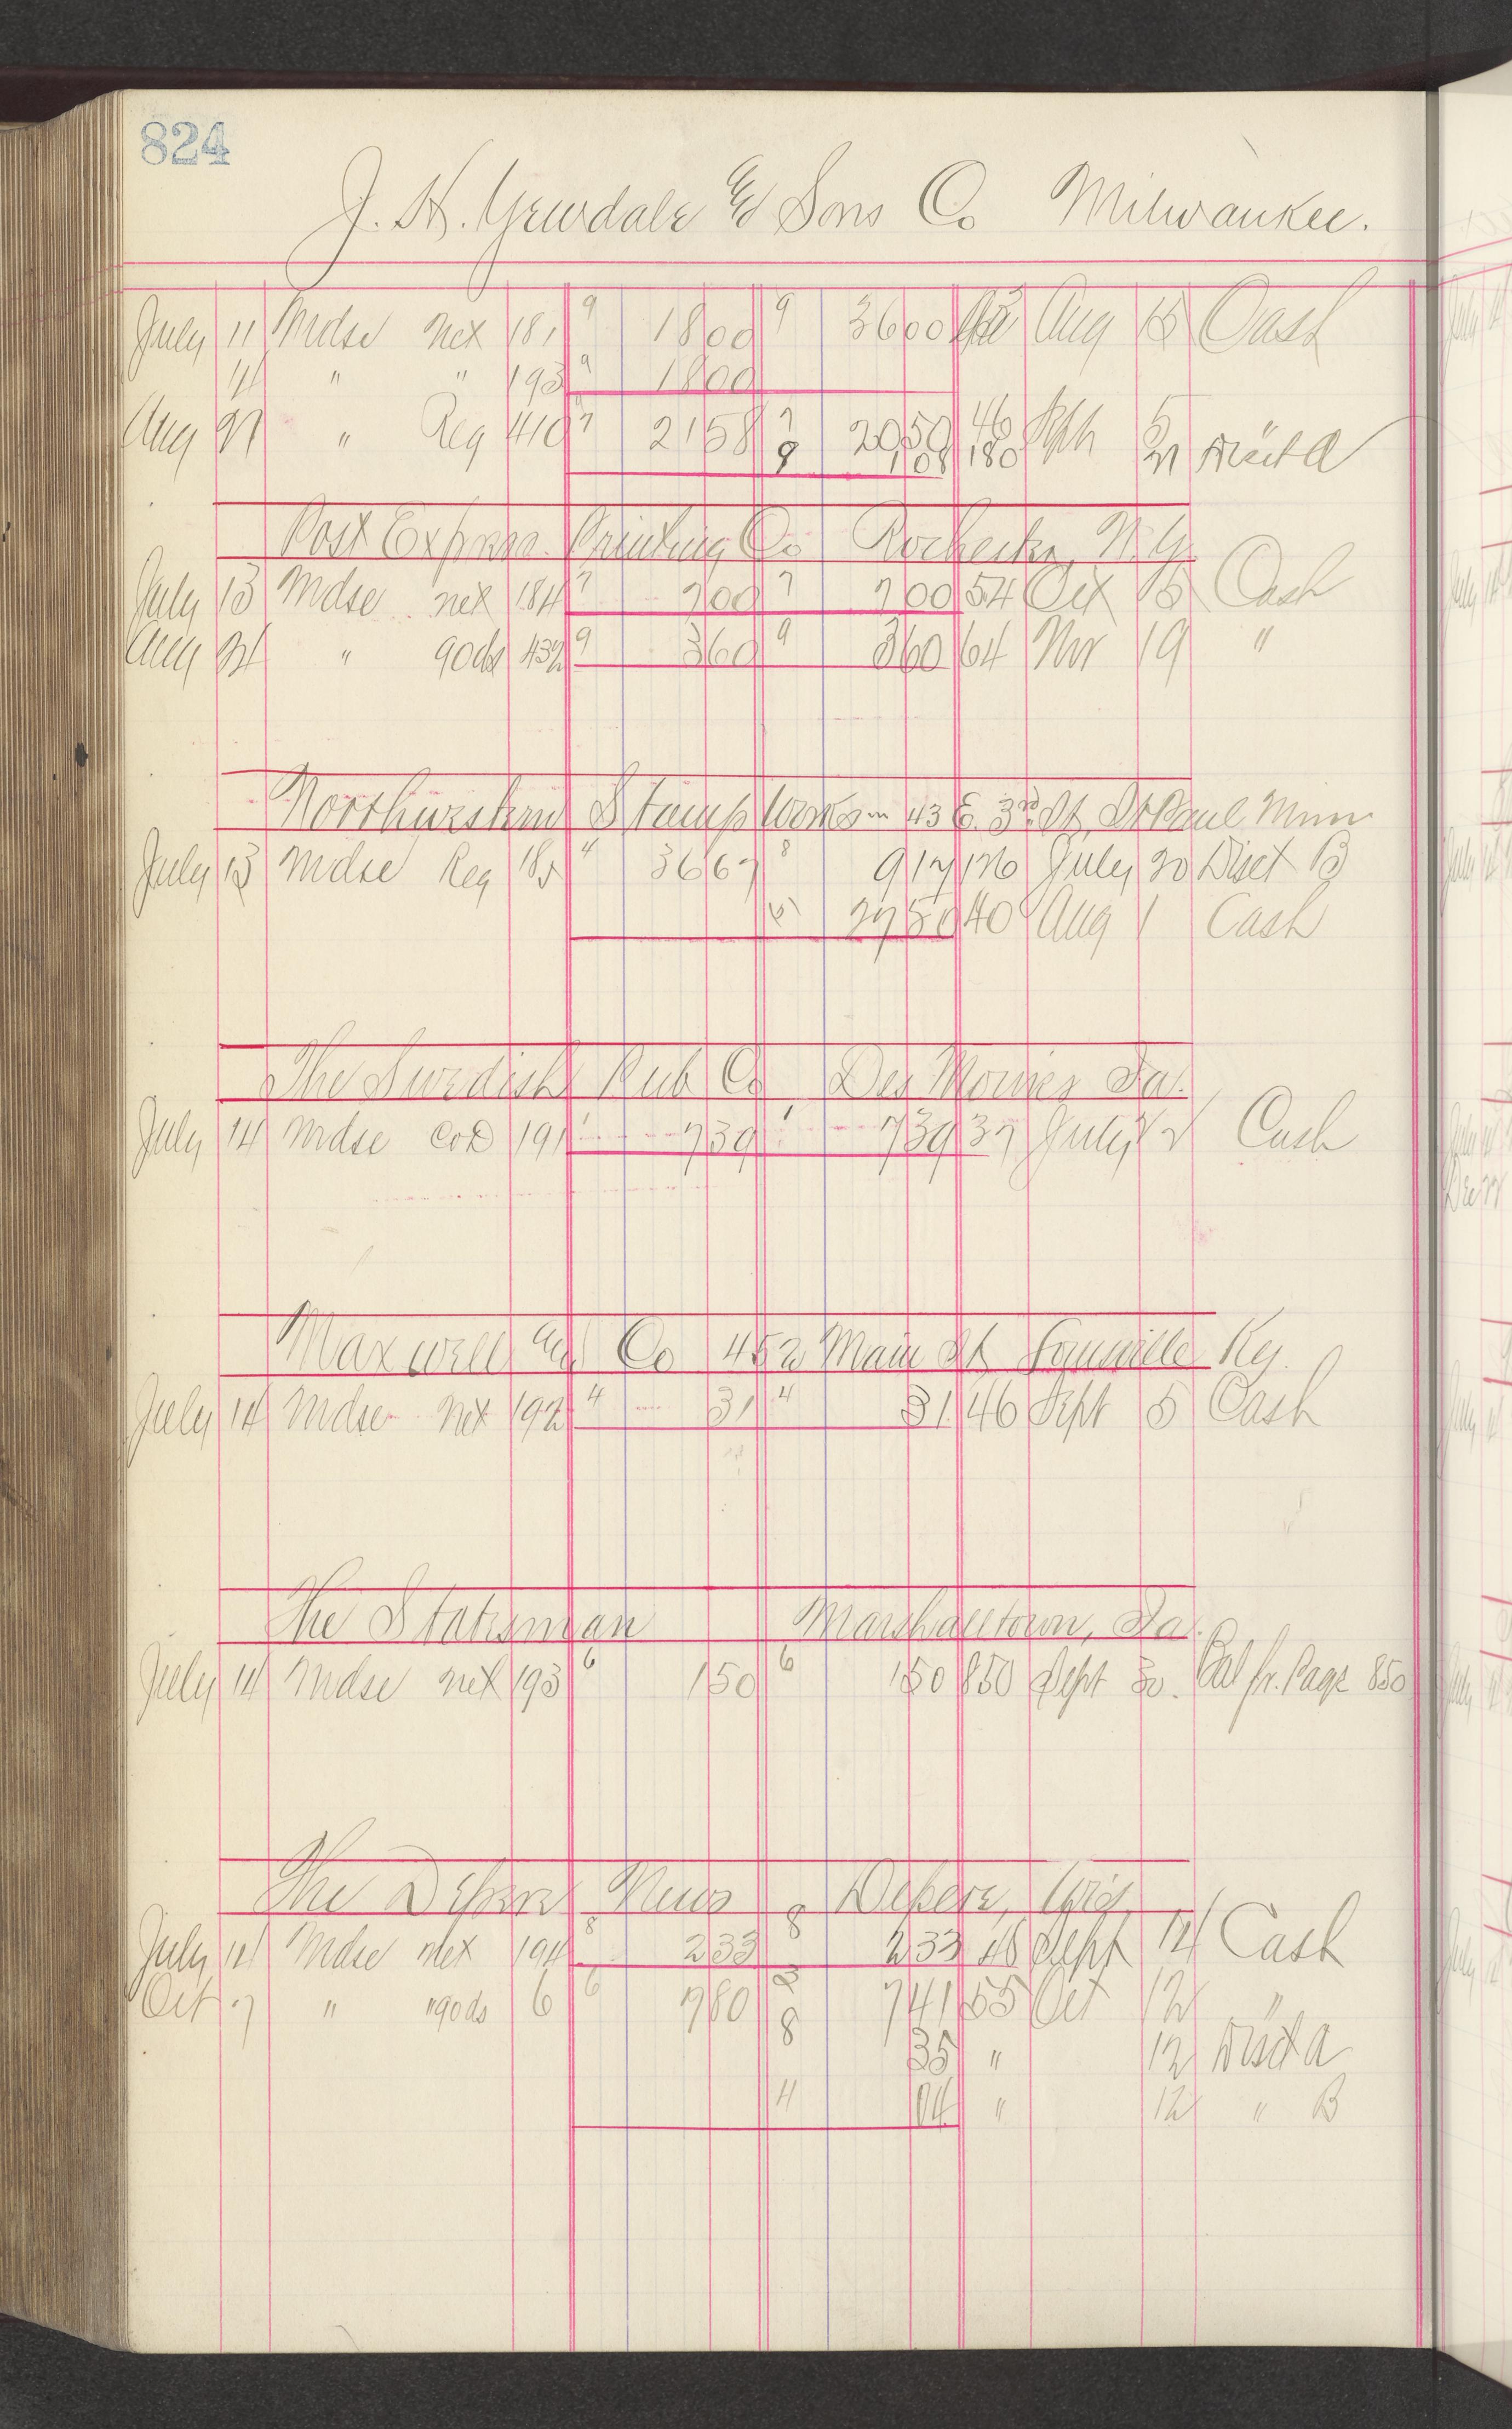 824
J. H. Yewdale & Sons Co Milwaukee.
July 11 Mdse net 181 9 1800 9 3600 Aug 15 Cash
14 " " 193 9 1800
Aug 27 " Reg 410 7 2158 7 2050 46 Sept 5
8 108 180 21 Disct A
Post Express Printing Co Rochester, N.Y.
July 13 Mdse net 184 7 700 7 700 54 Oct 15 Cash
Aug 31 " 90ds 432 9 360 9 360 64 Nov 19 "
Northwestern Stamp Works 43 E. 3rd St, St Paul Minn
July 13 Mdse Reg 185 4 3667 8 917 126 July 20 Disct B
2750 40 Aug 1 Cash
The Swedish Pub Co Des Moines Ia.
July 14 Mdse COD 191 1 739 1 739 37 July Cash
Maxwell Co 452 Main St Louisville Ky.
July 14 Mdse net 192 4 31 4 31 46 Sept 5 Cash
The Statesman Marshalltown, Ia.
July 14 Mdse net 193 6 150 6 150 850 Sept 30. Bal fr. Page 850
The Depere News Depere, Wis
July 14 Mdse net 194 8 233 8 233 48 Sept 14 Cash
Oct 7 " "90ds 6 6 780 2 741 55 Oct 12 "
8 35 " 12 Disct A
4 04 " 12 " B